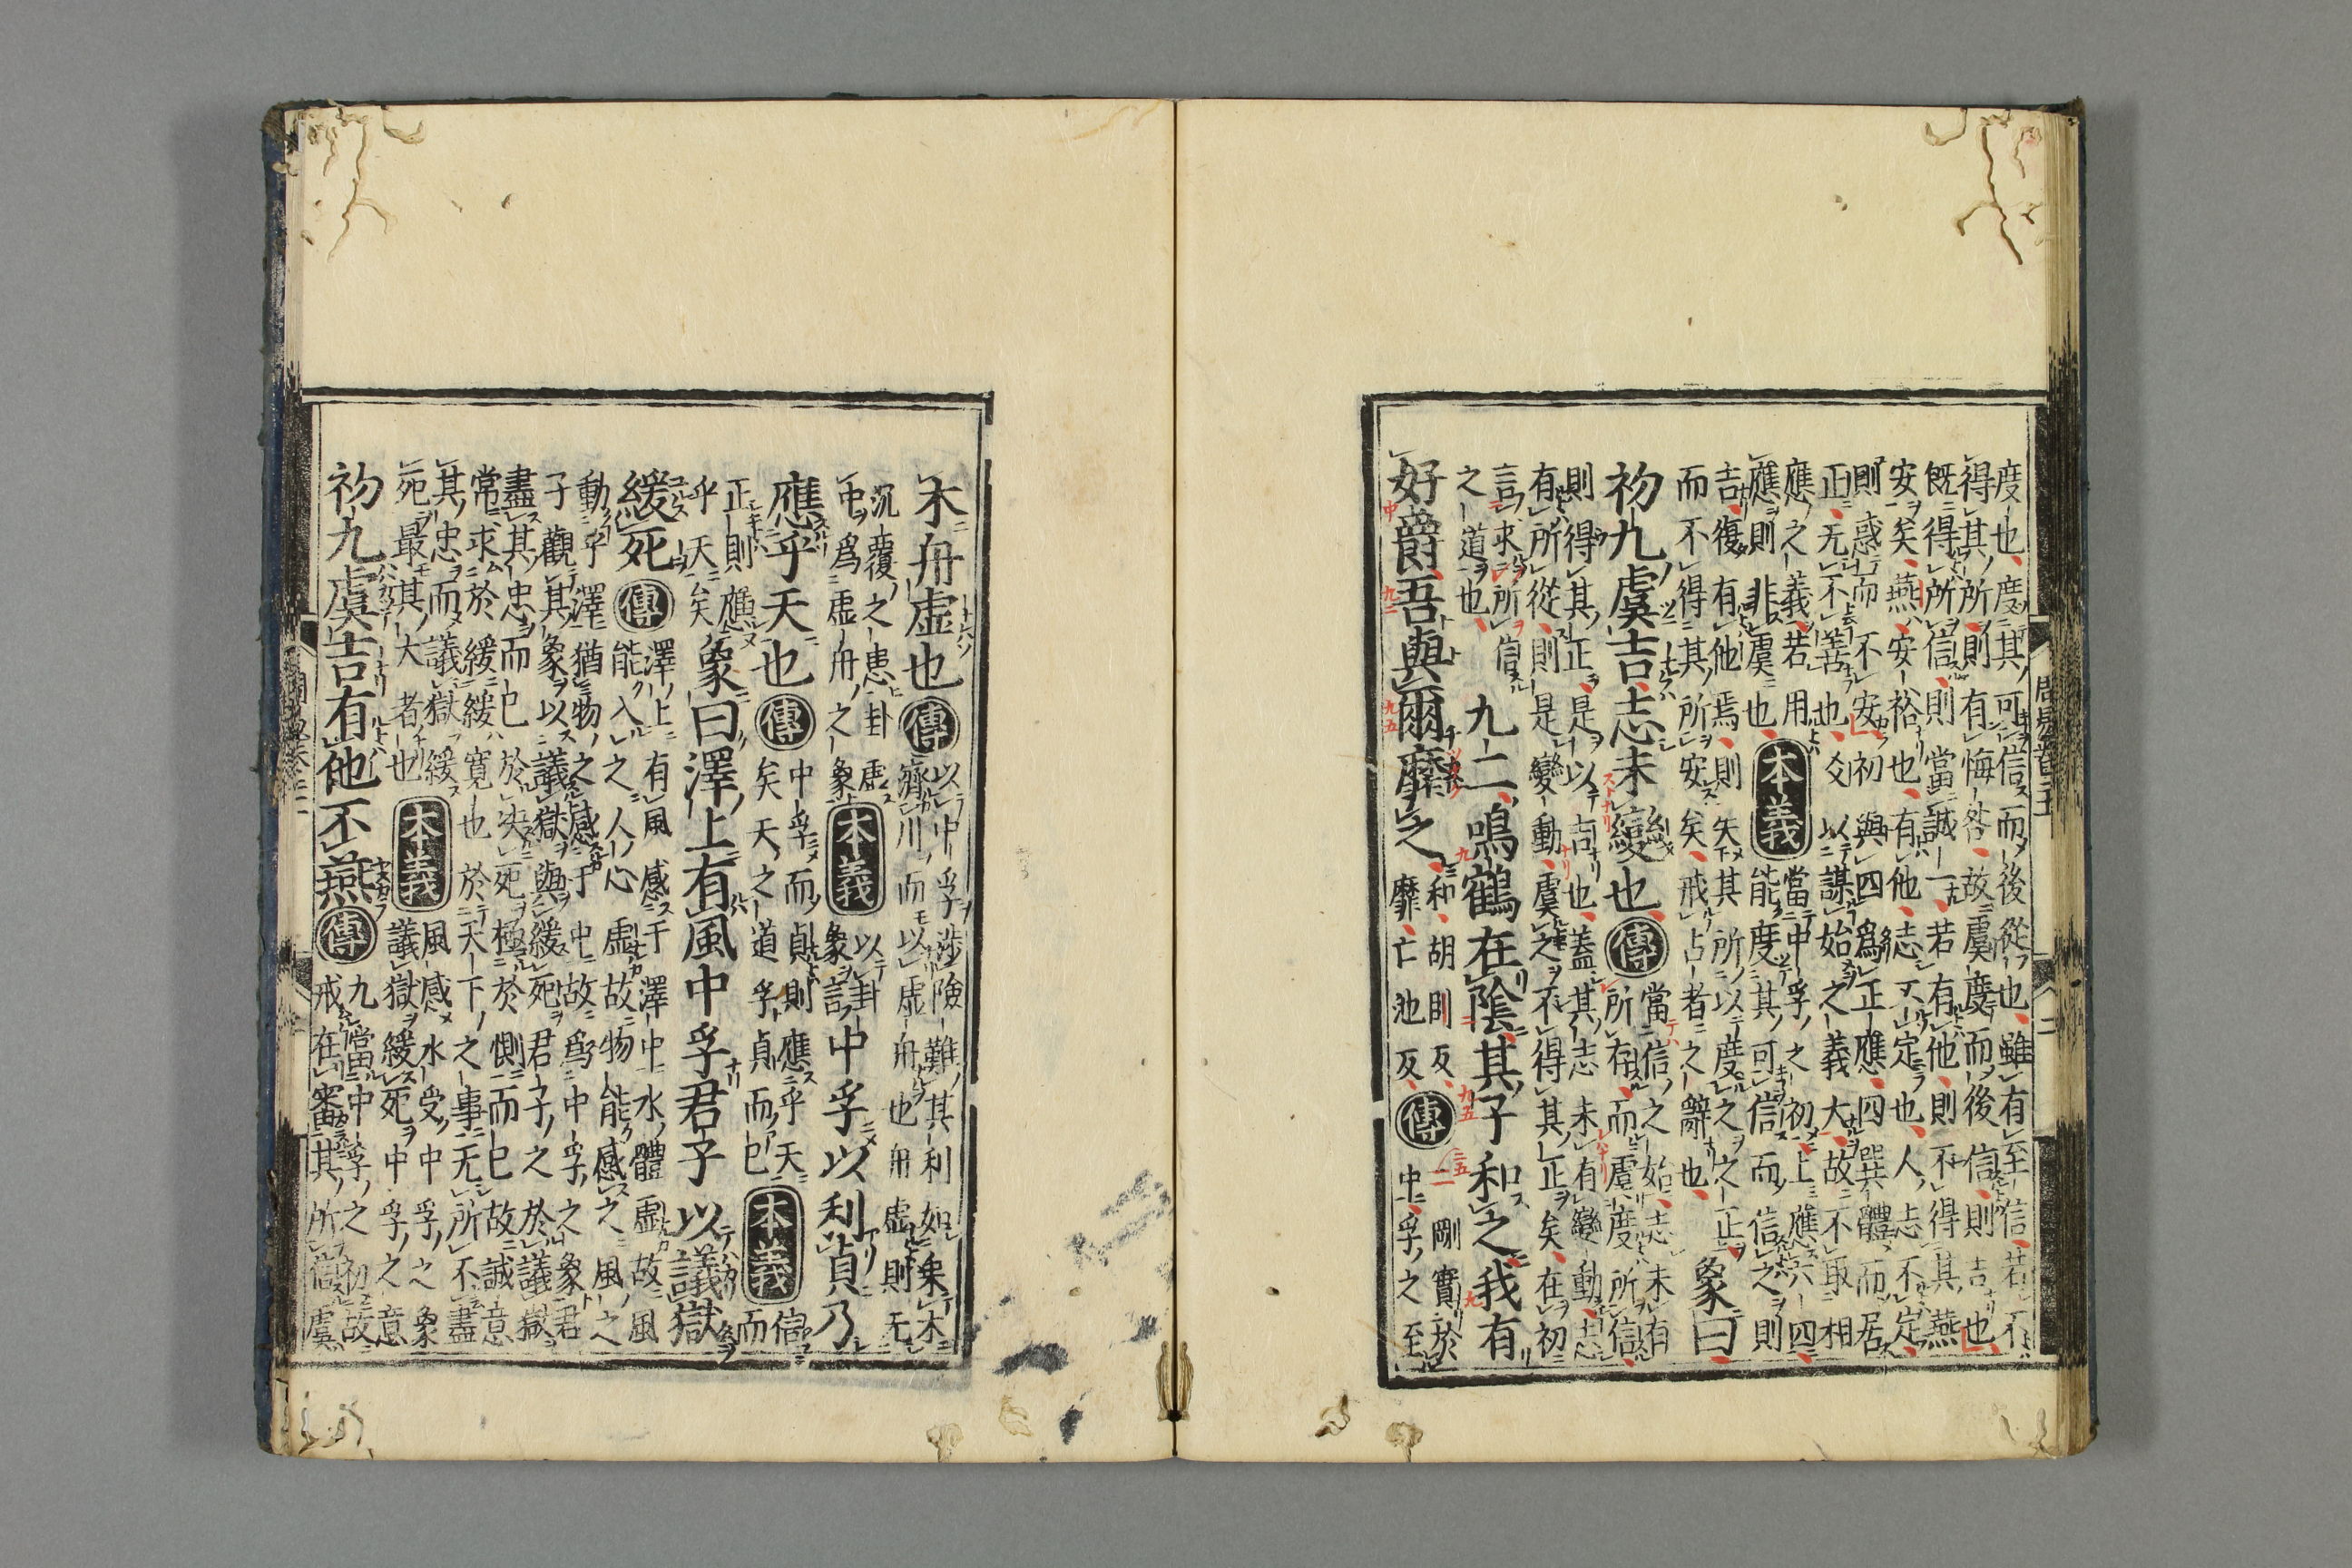 度也度其可信而後從也雖有至信若不
得其所則有悔咎故虞度而後信則吉也
既得所信則當誠一若有他則不得其燕
安矣燕安裕也有他志不定也人志不定
則惑而不安初與四爲正應四巽體而居
正无不善也爻以謀始之義大故不取相
應之義若用
應則非虞也
本義
當中孚之初上應六四
能度其可信而信之則
吉復有他焉則失其所以度之之正
而不得其所安矣戒占者之辭也
象曰
初九虞吉志未變也
傳
當信之始志未有
所存而虞度所信
則得其正是以吉也蓋其志未有變動志
有所從則是變動虞之不得其正矣在初
言求所信
之道也
九二鳴鶴在陰其子和之我有
好爵吾與爾靡之
和胡則反
靡亡池反
傳
剛實於
中孚之至
木舟虛也
傳
以中孚涉險難其利如乘木
濟川而以虛舟也舟虛則无
沉覆之患卦虛
中爲虛舟之象
本義
以卦
象言
中孚以利貞乃
應乎天也
傳
中孚而貞則應乎天
矣天之道孚貞而已
本義
信
而
正則應
乎天矣
象曰澤上有風中孚君子以議獄
緩死
傳
澤上有風感于澤中水體虛故風
能入之人心虛故物能感之風之
動乎澤猶物之感于中故爲中孚之象君
子觀其象以議獄與緩死君子之於議獄
盡其忠而已於決死極於惻而已故誠意
常求於緩緩寬也於天下之事无所不盡
其忠而議獄緩
死最其大者也
本義
風感水受中孚之象
議獄緩死中孚之意
初九虞吉有他不燕
傳
九當中孚之初故
戒在審其所信虞